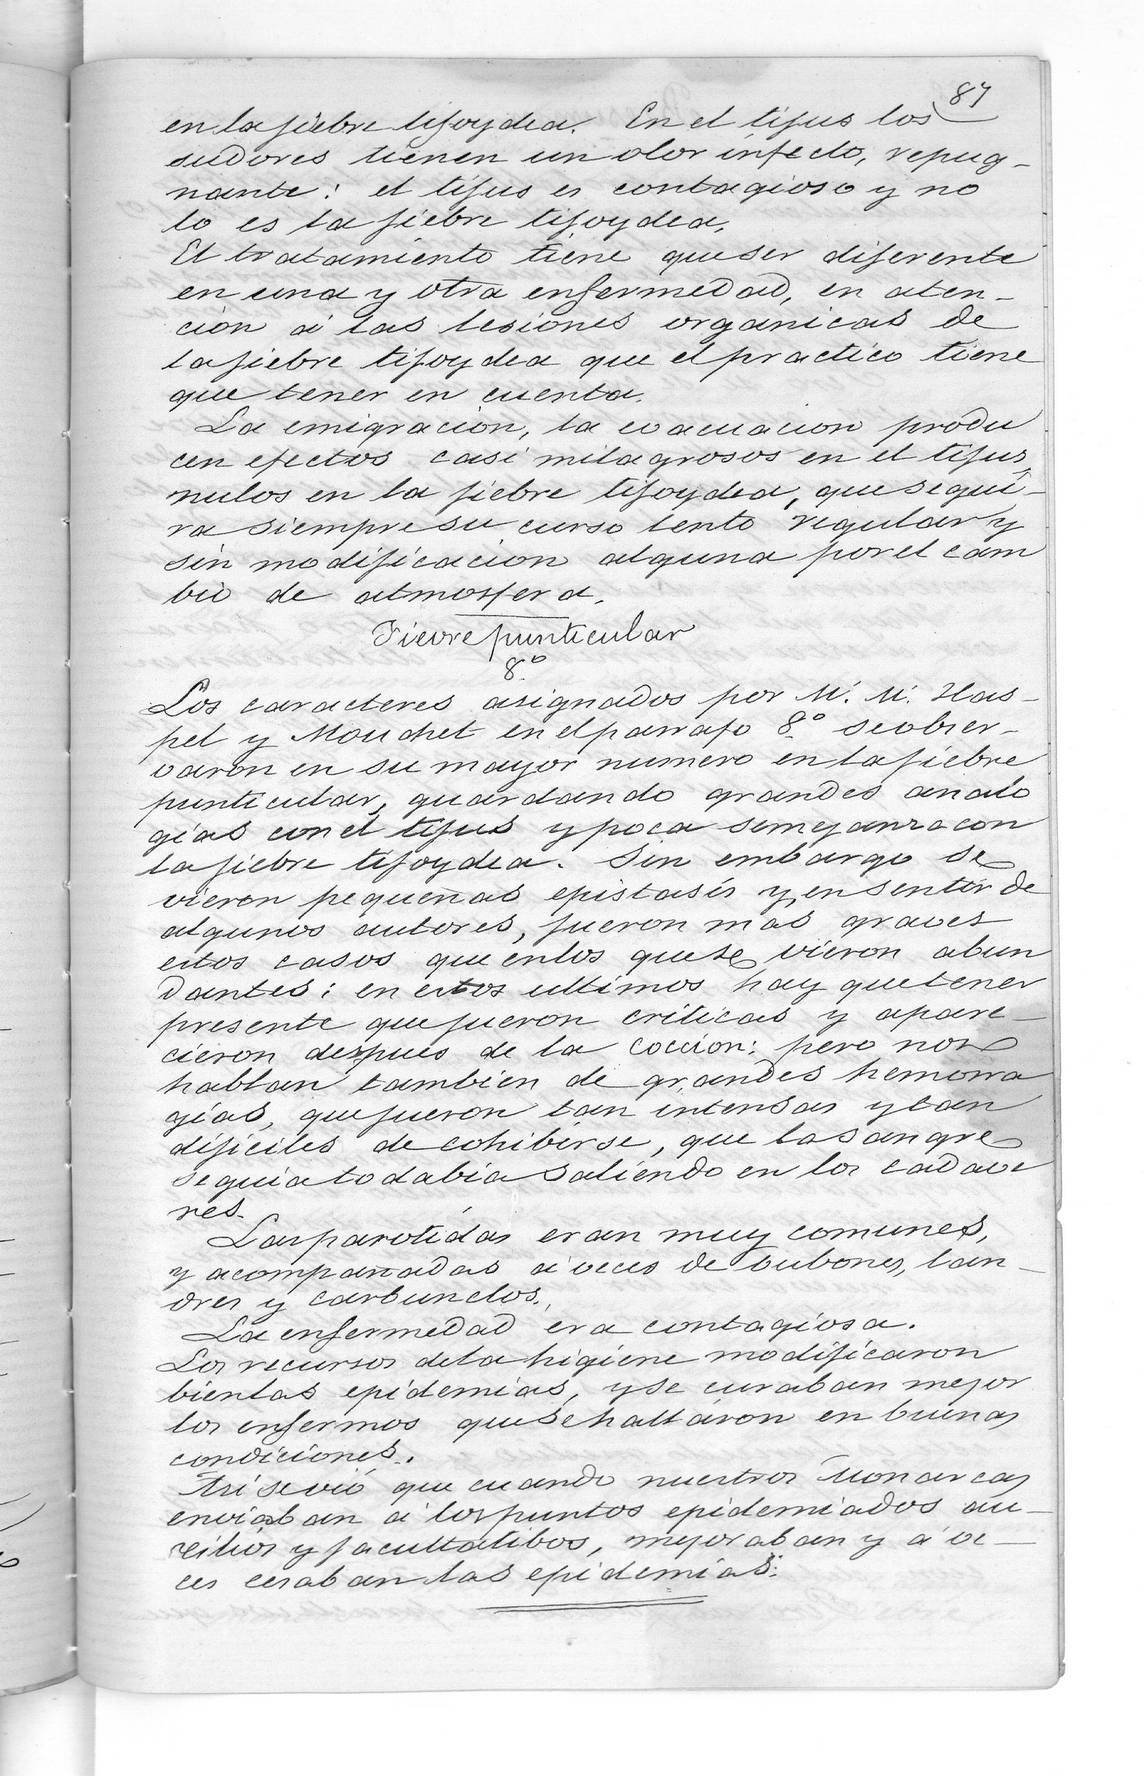 87
en la fiebre tifoydea. En el tifus los
sudores tienen un olor infecto, repug-
nante: el tifus es contagioso y no
lo es la fiebre tifoydea.
El tratamiento tiene que ser diferente
en una y otra enfermedad, en aten-
ción á las lesiones organicas de
la fiebre tifoydea que el practico tiene
que tener en cuenta.
La emigracion, la evacuacion produ
cen efectos casi milagrosos en el tifus,
nulos en la fiebre tifoydea, que segui-
ra siempre su curso lento regular y
sin modificacion alguna por el cam
bio de atmosfera.
Fievre punticular
8.º
Los caracteres asignados por M. M. Has-
pel y Mouchet en el parrafo 8.º se obser-
varon en su mayor numero en la fiebre
punticular, guardando grandes analo
gías con el tifus y poca semejanza con
la fiebre tifoydea. Sin embargo se
vieron pequeñas epistasis y en sentir de
algunos autores, fueron mas graves
estos casos que en los que se vieron abun
dantes: en estos ultimos hay que tener
presente que fueron criticas y apare-
cieron despues de la coccion: pero nos
hablan tambien de grandes hemorra
gias, que fueron tan intensas y tan
dificiles de cohibirse, que la sangre
seguia todabia saliendo en los cadave
res.
Las parotidas eran muy comunes,
y acompañadas á veces de bubones, lan-
dres y carbunclos.
La enfermedad era contagiosa.
Los recursos de la higiene modificaron
bien las epidemias, y se curaban mejor
los enfermos que se hallaron en buenas
condiciones.
Asi se vió que cuando nuestros Monarcas
enviaban á los puntos epidemiados au-
xilios y facultatibos, mejoraban y á ve-
ces cesaban las epidemias.